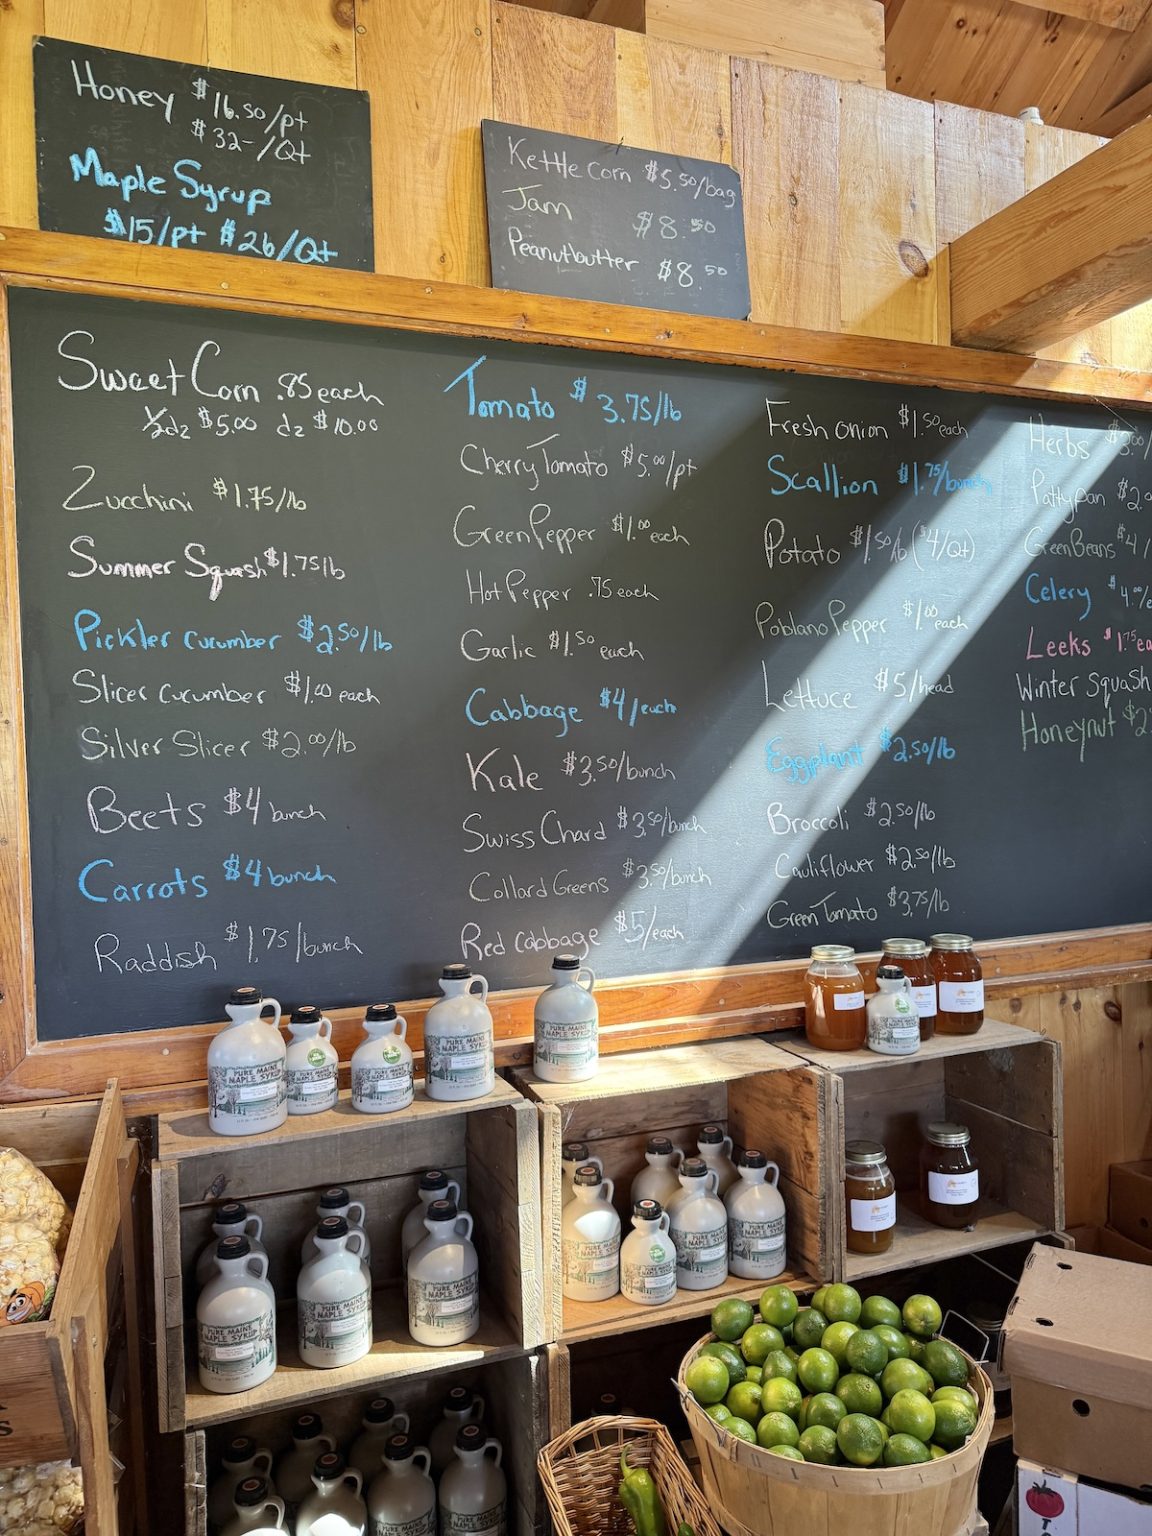 Honey $16.50/pt
$32-/Qt
Maple Syrup
$15/pt $26/Qt
Kettle Corn $5.50/bag
Jam $8.50
Peanutbutter $8.50
Sweet Corn .85 each
1/2dz $5.00 dz $10.00
Zucchini $1.75/lb
Summer Squash $1.75lb
Pickler cucumber $2.50/lb
Slicer cucumber $1.00 each
Silver Slicer $2.00/lb
Beets $4 bunch
Carrots $4 bunch
Raddish $1.75/bunch
Tomato $3.75/lb
Cherry Tomato $5.00/pt
Green Pepper $1.00 each
Hot Pepper .75 each
Garlic $1.50 each
Cabbage $4/each
Kale $3.50/bunch
Swiss Chard $3.50/bunch
Collard Greens $3.50/bunch
Red Cabbage $5/each
Fresh onion $1.50 each
Scallion $1.75/bunch
Potato $1.50/lb ($4/Qt)
Poblano Pepper $1.00 each
Lettuce $5/head
Eggplant $2.50/lb
Broccoli $2.50/lb
Cauliflower $2.50/lb
Green Tomato $3.75/lb
Herbs $3.00/
Pattypan $2.0
Green Beans $4/
Celery $4.00/e
Leeks $1.75 ea
Winter Squash
Honeynut $2
PURE MAINE
MAPLE SYRUP
PURE MAINE
MAPLE SYRUP
PURE MAINE
MAPLE SYRUP
PURE MAINE
MAPLE SYRUP
PURE MAINE
MAPLE SYRUP
PURE MAINE
MAPLE SYRUP